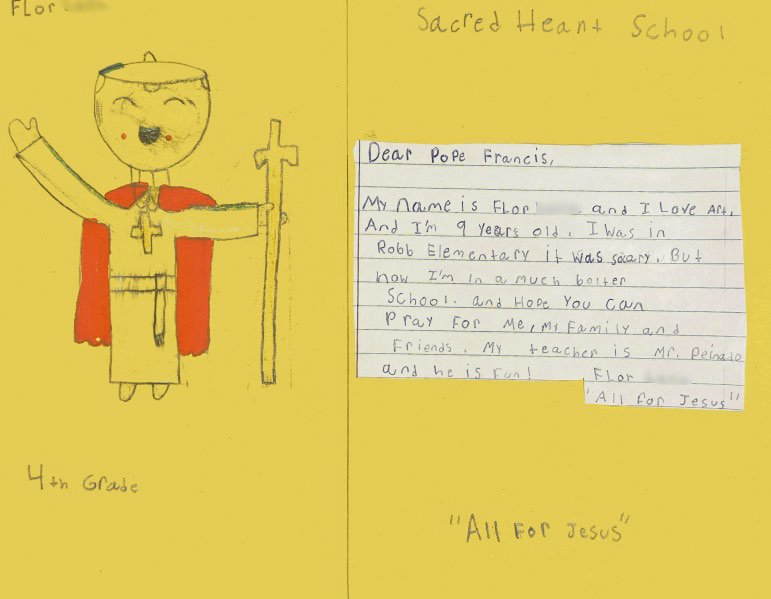 FLor
4th Grade
Sacred Heart School
Dear Pope Francis,
My name is FLor and I Love Art.
And I'm 9 years old. I was in
Robb Elementary it was scary. But
now I'm in a much better
School. and Hope You can
Pray For Me, My Family and
Friends. My teacher is Mr. Peinado
and he is Fun! FLor
"All For Jesus"
"All For Jesus"